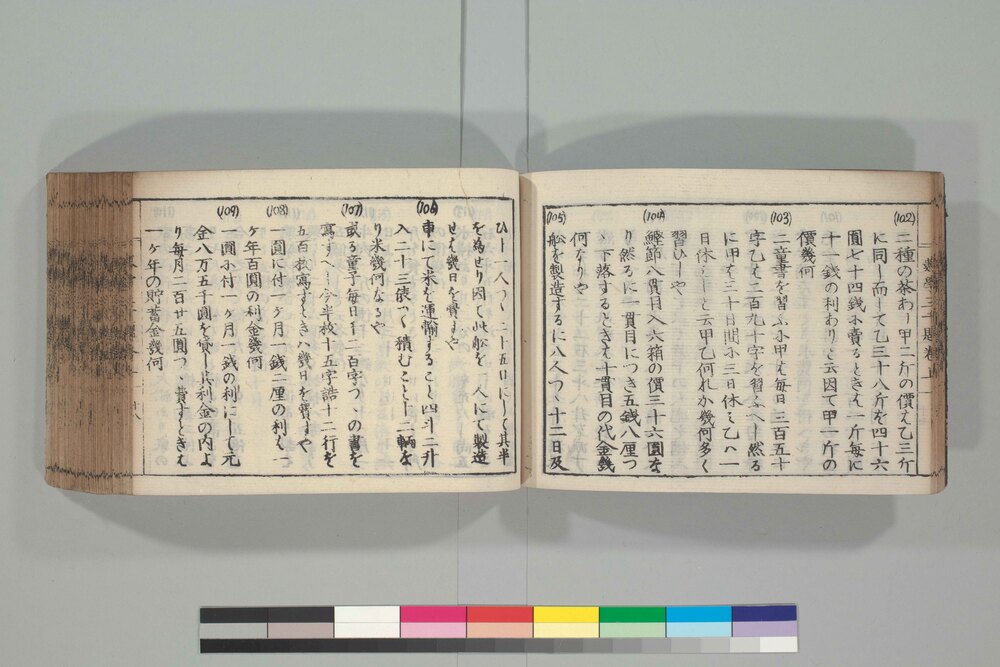 (102)
二種の茶あり甲二斤の價は乙三斤
に同し而して乙三十八斤を四十六
圓七十四錢に賣るときは一斤毎に
十一錢の利ありと云因て甲一斤の
價幾何
(103)
二童書を習ふに甲は毎日三百五十
字乙は二百九十字を習ふへし然る
に甲は三十日間に三日休み乙ハ一
日休みしと云甲乙何れか幾何多く
習ひしや
(104)
鰹節八貫目入六箱の價三十六圓なり
り然るに一貫目につき五錢八厘つ
つ下落するときは十貫目の代金幾
何なりや
(105)
船を製造するに八人つゝ十二日及
ひ十一人つゝ二十五日にして其半
を為せり因て此船を
人にて製造
せは幾日を費すや
(106)
車にて米を運輸すること四斗二升
入二十三俵つゝ積むこと十二輌な
り米幾何なるや
(107)
或る童子毎日千二百字つゝの書を
寫すへし今半枚十五字詰十二行を
五百枚寫すときハ幾日を費すや
(108)
一圓に付一ヶ月一錢二厘の利は一
ヶ年百圓の利金幾何
(109)
一圓に付一ヶ月一錢の利にして元
金八万五千圓を貸し其利金の内よ
り毎月二百廿五圓つゝ費すときは
一ヶ年の貯蓄金幾何